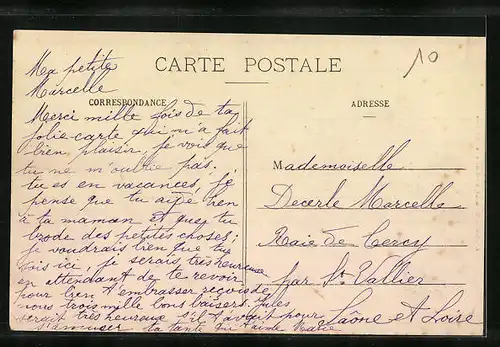 10
CARTE POSTALE
CORRESPONDANCE
ADRESSE
Ma petite
Marcelle
Merci mille fois de ta
jolie carte qui m'a fait
bien plaisir, je vois que
tu ne m'oublie pas.
tu es en vacances, je
pense que tu aide bien
à ta maman et que tu
brode des petites choses;
je voudrais bien que tu
sois ici, je serais très heureuse
en attendant de te revoir
pour bien t'embrasser reçois de
nous trois mille bons baisers. Jules
serait très heureux s'il t'avait pour
s'amuser ta tante qui t'aime Marie
Mademoiselle
Decerle Marcelle
Raie de Cercy
par St Vallier
Saône et Loire